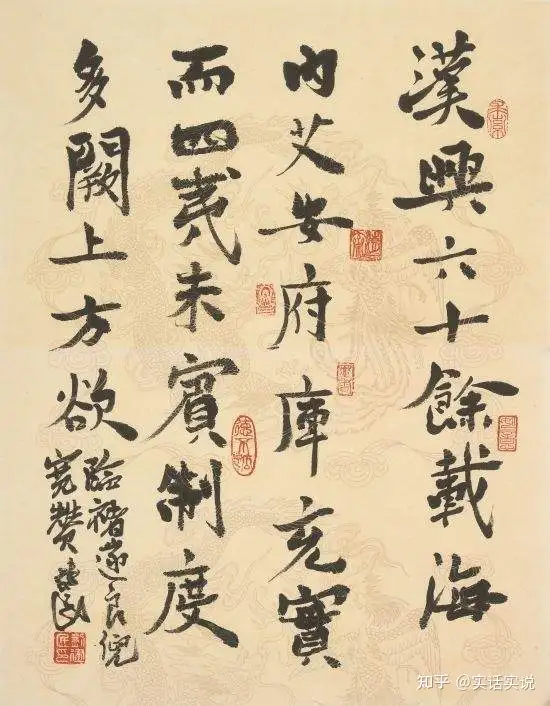 漢興六十餘載海
内艾安府庫充實
而四夷未賓制度
多闕上方欲
臨褚遂良倪
寬贊
知乎 @实话实说